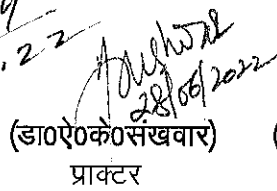 .22
28/06/2022
(डा0ऐ0के0संखवार) (
प्राक्टर